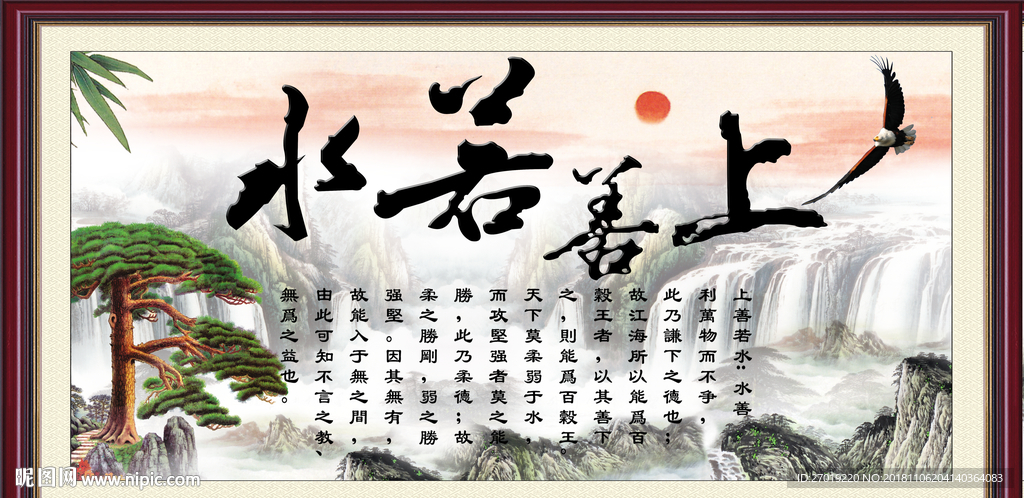 上善若水
上善若水：水善
利萬物而不爭，
此乃謙下之德也；
故江海所以能爲百
榖王者，以其善下
之，則能爲百榖王。
天下莫柔弱于水，
而攻堅强者莫之能
勝，此乃柔德；故
柔之勝剛，弱之勝
强堅。因其無有，
故能入于無之間，
由此可知不言之教、
無爲之益也。
昵图网 www.nipic.com
ID:27019220 NO:20181106204140364083